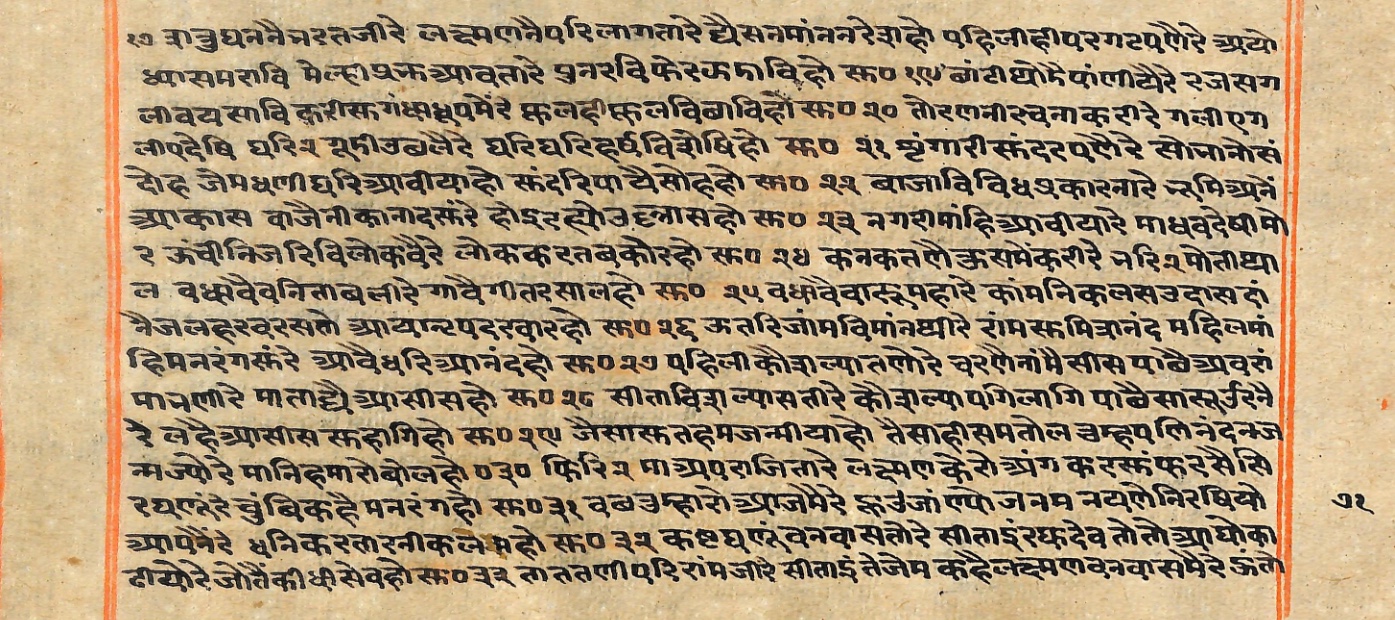 १७ शत्रुघननै भरतजीरे लक्ष्मणनै परि लागतारे द्यै सनमांन नरेशहो पहिलीही परगट पणैरे अयो
ध्यास मरावि मेल्ही प्रभु आवतारे पुनरवि फेर कदाविहो सु० १९ बांटी घोमै पांणीयैरे रज सग
ली वयसावि करी सुगंध धूपमेंरे फूलही फूल विछाविहो सु० २० तोरणनी रचना करीरे गली एग
ली एदेषि घरि २ गूडी उछलैरे घरि घरि हर्ष विशेषिहो सु० २१ शृंगारी सुंदर पणैरे सोनानो सं
दोह जेम धणी घरि आवीयाहो सुंदरि पायै सोहहो सु० २२ बाजा विविध प्रकारनारे भूमि अनें
आकास वाजै नीका नादसुंरे होइ रह्यो उल्लासहो सु० २३ नगरी मांहि आवीयारे माधव देषी मो
र ऊंची निजरि विलोकवैरे लोक करत बकोरहो सु० २४ कनक तणै कूसमें करीरे भरि २ मोती था
ल वधावै वनिता बलीरे गावै गीत रसालहो सु० २५ वधावै वारू महारे कांमनि कलस उदास दां
नै जलहर वरसतो आया नृप दरबारहो सु० २६ ऊतरि जांम विमांनथीरे रांम सुमित्रानंद महिल मां
हि मनरंग सुंरे आवै धरि आनंदहो सु० २७ पहिली कौशल्या तणैरे चरणै नांमै सीस पाछै अवरां
पाभणीरे माता द्यै आसीसहो सु० २८ सीता विशल्या सतीरे कौशल्या पगि लागि पाछै सासू उरिनै
रे लहै आसीस सुहागिहो सु० २९ जैसा सुत हम जन्मीयाहो तैसाही समतोल चम्हपणि नंदन ज
न्मज्योरे मानि हमारो बोलहो ० ३० फिरि २ मा अपराजितारे लक्ष्मण केरो अंग कर सुं फरसै सि
र घणुंरे चुंबि कहै मनरंगहो सु० ३१ वछ उम्हारो आजमैरे हुउं जांण्यो जनम नयणे निरषियो
आपनैंरे धनि करतारनी कलमहो सु० ३२ कष्ट घणुं वनवासतोरे सीताइं रघुदेव तोतो आघो का
ढीयोरे जोतैं कीधी सेवहो सु० ३३ तात तणी परि रांमजीरे सीताइं तेजेम कहै लक्ष्मण वनवासमैरे ऊंतो
७१